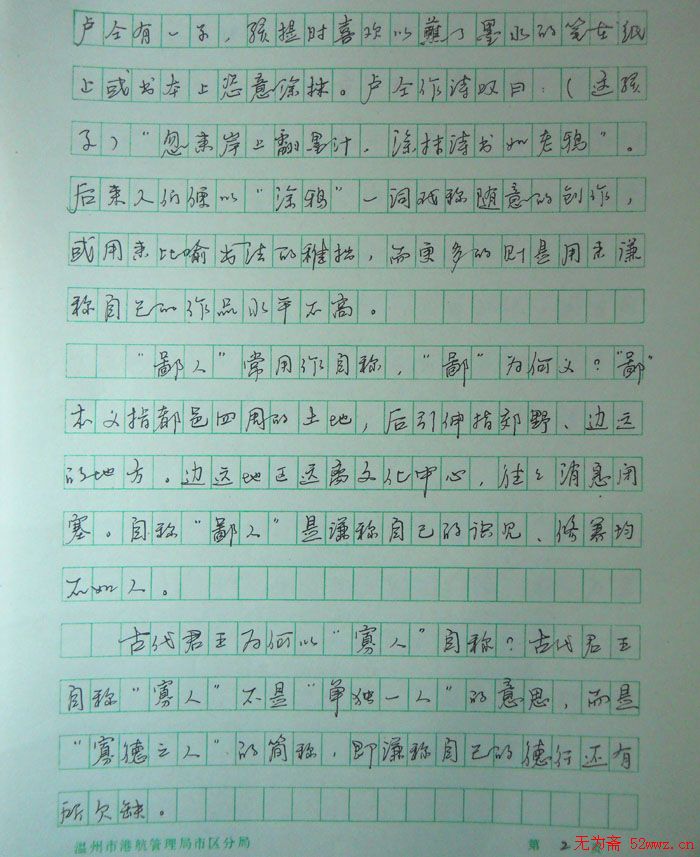 卢仝有一子，孩提时喜欢以蘸了墨水的笔在纸
上或书本上恣意涂抹。卢仝作诗叹曰：（这孩
子）“忽来岸上翻墨汁，涂抹诗书如老鸦”。
后来人们便以“涂鸦”一词戏称随意的创作，
或用来比喻书法的稚拙，而更多的则是用来谦
称自己的作品水平不高。
“鄙人”常用作自称，“鄙”为何义？“鄙”
本义指都邑四周的土地，后引伸指郊野、边远
的地方。边远地区远离文化中心，往往消息闭
塞。自称“鄙人”是谦称自己的识见、修养均
不如人。
古代君王为何以“寡人”自称？古代君王
自称“寡人”不是“单独一人”的意思，而是
“寡德之人”的简称，即谦称自己的德行还有
所欠缺。
温州市港航管理局市区分局 第 2 页
无为斋 52wwz.cn